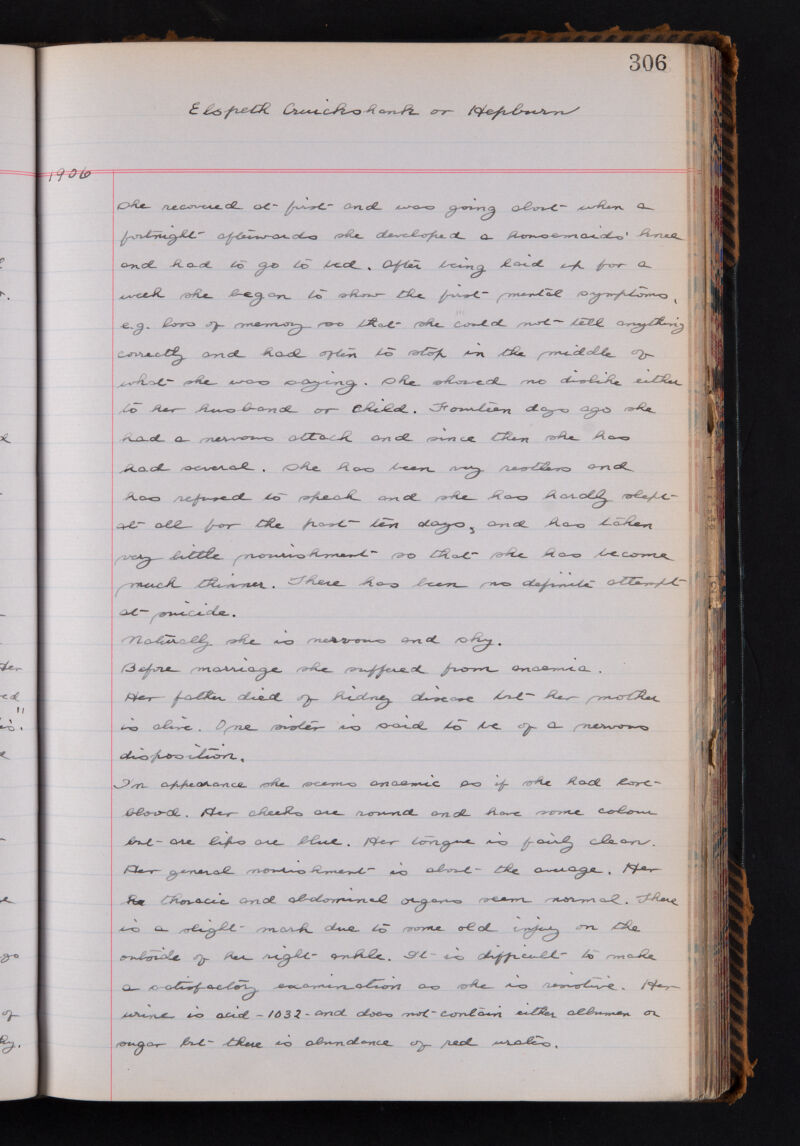 306
Elspeth Cruickshank or Hepburn
1906
She recovered at first and was going about when a
fortnight afterwards she developed a housemaids' knee
and had to go to bed. After being laid up for a
week she began to show the first mental symptoms,
e.g. loss of memory so that she could not tell anything
correctly and had often to stop in the middle of
what she was saying. She showed no dislike either
to her husband or child. Fourteen days ago she
had a nervous attack and since then she has
had several. She has been very restless and
has refused to speak and she has hardly slept
at all for the past ten days, and has taken
very little nourishment so that she has become
much thinner. There has been no definite attempt
at suicide.
Naturally she is nervous and shy.
Before marriage she suffered from anaemia.
Her father died of kidney disease but her mother
is alive. One sister is said to be of a nervous
disposition.
In appearance she seems anaemic as if she had lost
blood. Her cheeks are round and have some colour
but are lips are blue. Her tongue is fairly clean.
Her general nourishment is about the average. Her
he thoracic and abdominal organs seem normal. There
is a slight mark due to some old injury on the
outside of her right ankle. It is difficult to make
a satisfactory examination as she is resistive. Her
urine is acid - 1032 - and does not contain either albumen or
sugar but there is abundance of red urates.